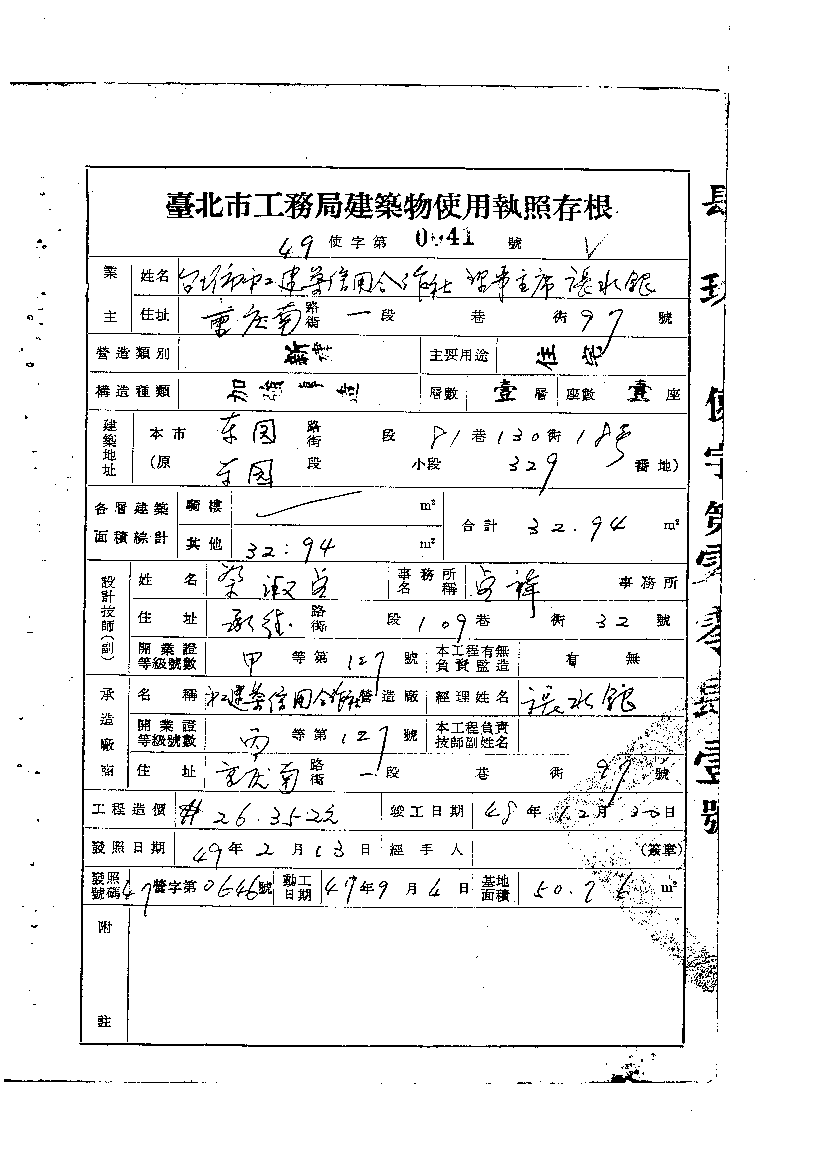 臺北市工務局建築物使用執照存根
49 使字第 0041 號
業主 姓名 建築信用合作社 理事主席 張水銀
住址 重慶南 路街 一段 巷 街 97 號
營造類別 新建 主要用途 住宅
構造種類 加強 造 層數 壹 層 座數 壹 座
建築地址 本市 東園 路街 段 81 巷 130 街 18号
(原 東園 段 小段 329 番地)
各層建築面積綜計 騎樓 m² 合計 32.94 m²
其他 32.94 m²
設計技師(副) 姓名 蔡淑 事務所名稱 事務所
住址 承德 路街 段 109 巷 街 32 號
開業證等級號數 甲 等第 127 號 本工程有無負責監造 有 無
承造廠商 名稱 建築信用合作社 營造廠 經理姓名 張水銀
開業證等級號數 丙 等第 127 號 本工程負責技師副姓名
住址 重慶南 路街 一段 巷 街 97 號
工程造價 26.352元 竣工日期 48年12月30日
發照日期 49年2月13日 經手人 (簽章)
發照號碼 47營字第0646號 動工日期 47年9月4日 基地面積 50.76 m²
附註
使字第零零
壹號